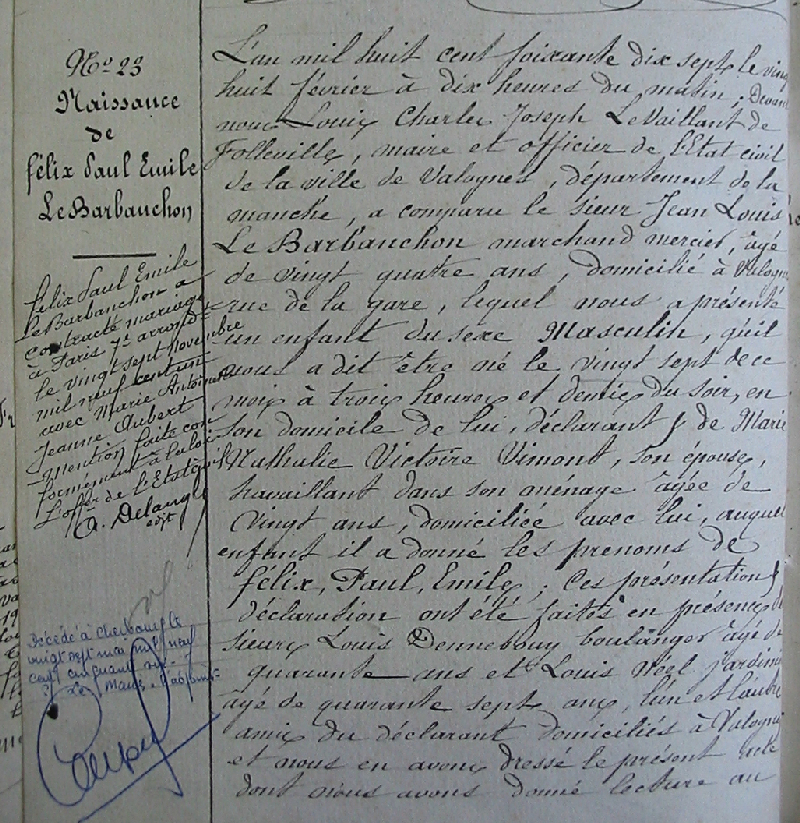 No 23
Naissance
de
félix Paul Emile
LeBarbanchon
félix Paul Emile
LeBarbanchon a
contracté mariage
à Paris 7e arrondt
le vingt sept Novembre
mil neuf cent un
avec Marie Antoinette
Jeanne Aubert
mention faite con
formément à la loi
L'offr de l'Etat civil
Décédé à Cherbourg le
vingt sept mai mil neuf
cent cinquante
L'an mil huit cent soixante dix sept le vingt
huit février à dix heures du matin, Devant
nous Louis Charles Joseph LeVaillant de
Folleville, maire et officier de l'Etat civil
de la ville de Valognes, département de la
manche, a comparu le sieur Jean Louis
Le Barbanchon marchand mercier, âgé
de vingt quatre ans, domicilié à Valognes
rue de la gare, lequel nous a présenté
un enfant du sexe Masculin, qu'il
nous a dit être né le vingt sept de ce
mois à trois heures et demie du soir, en
son domicile de lui, déclarant & de Marie
Nathalie Victoire Vimont, son épouse,
travaillant dans son ménage âgée de
vingt ans, domiciliée avec lui, auquel
enfant il a donné les prenoms de
félix, Paul, Emile; Ces présentation &
déclaration ont été faites en présence de
sieurs Louis Dennebouy boulanger âgé de
quarante ans et Louis Noel jardinier
âgé de quarante sept ans, l'un et l'autre
amis du déclarant domiciliés à Valognes
et nous en avons dressé le présent acte
dont nous avons donné lecture au